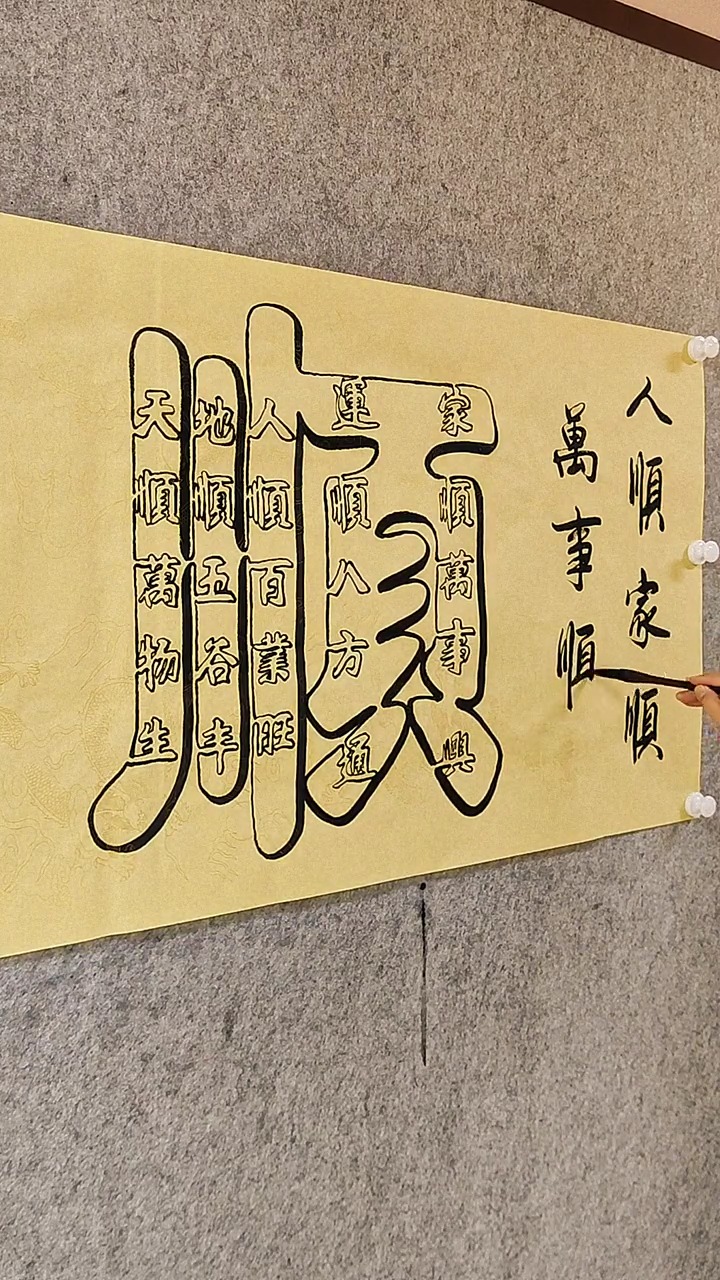 人順家順
萬事順
順
天順萬物生
地順五谷丰
人順百業旺
運順八方通
家順萬事興